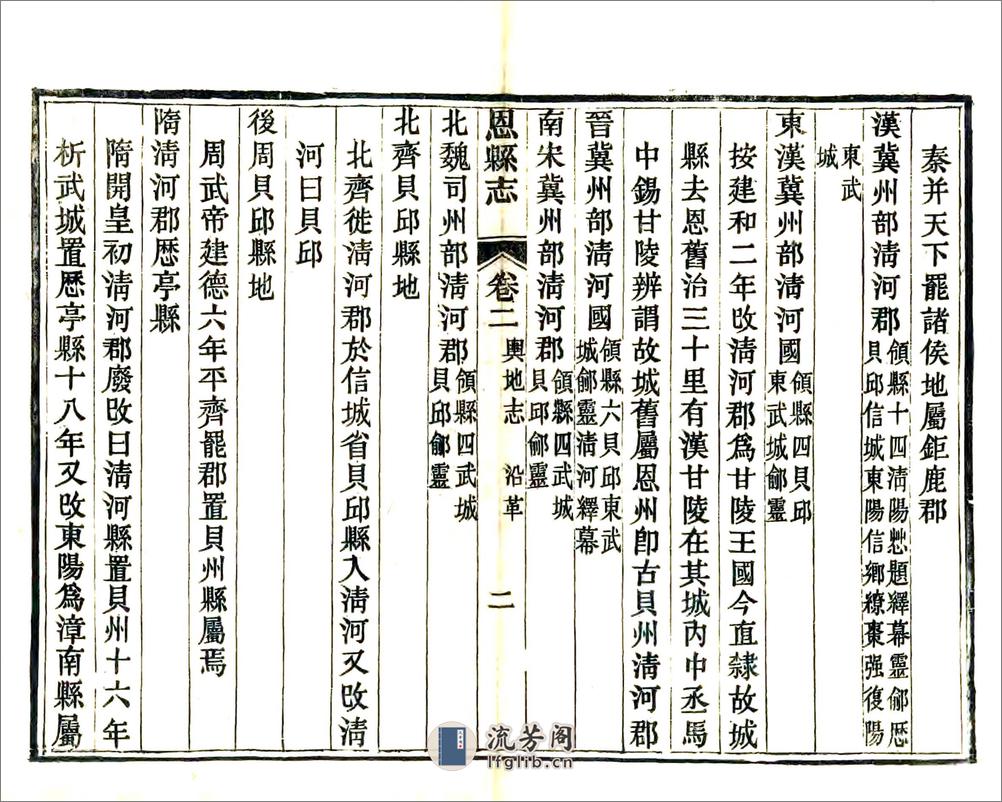 秦并天下罷諸侯地屬鉅鹿郡
漢冀州部清河郡領縣十四清陽𢠵題繹幕靈鄃厯
貝邱信城東陽信鄉繚棗强復陽
東武
城
東漢冀州部清河國領縣四貝邱
東武城鄃靈
按建和二年改清河郡爲甘陵王國今直隸故城
縣去恩舊治三十里有漢甘陵在其城內中丞馬
中錫甘陵辨謂故城舊屬恩州卽古貝州清河郡
晉冀州部清河國領縣六貝邱東武
城鄃靈清河繹幕
南宋冀州部清河郡領縣四武城
貝邱鄃靈
恩縣志 卷二 輿地志 沿革 二
北魏司州部清河郡領縣四武城
貝邱鄃靈
北齊貝邱縣地
北齊徙清河郡於信城省貝邱縣入清河又改清
河曰貝邱
後周貝邱縣地
周武帝建德六年平齊罷郡置貝州縣屬焉
隋清河郡厯亭縣
隋開皇初清河郡廢改曰清河縣置貝州十六年
析武城置厯亭縣十八年又改東陽爲漳南縣屬
流芳阁
lfglib.cn